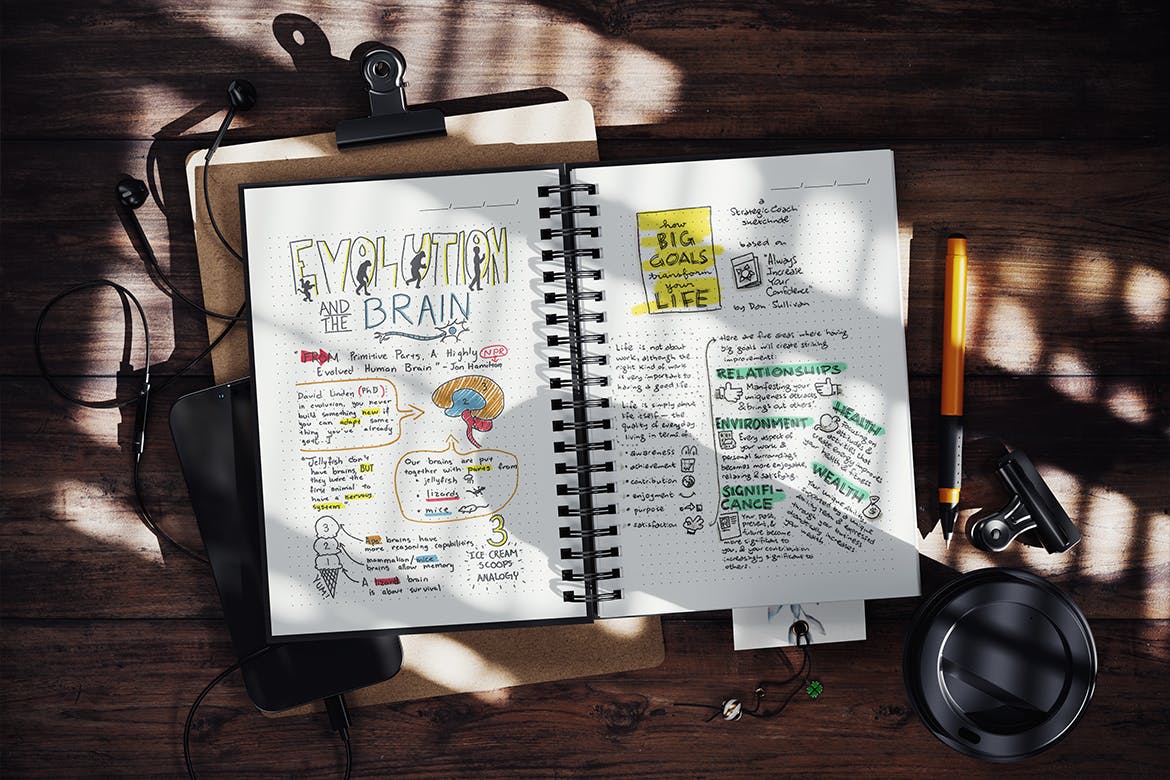 EVOLUTION
AND
THE
BRAIN
"FROM Primitive Parts, A Highly NPR
Evolved Human Brain" - Jon Hamilton
David Linden (PhD):
in evolution, you never
build something new if
you can adapt some-
thing you've already
got...
3
2
1
"Jellyfish don't
have brains, BUT
they were the
first animal to
have a nervous
system
Our brains are put
together with parts from
• jellyfish
• lizards
• mice
3
2
1
Ape brains have
more reasoning capabilities
mammalian/mice
brains allow memory
A lizard brain
is about survival
3
ICE CREAM
SCOOPS
ANALOGY
how
BIG
GOALS
transform
your
LIFE
a
Strategic Coach
based on
"Always
Increase
Your
Confidence"
by Dan Sullivan
Life is not about
work, although the
right kind of work
is very important to
having a good life.
Life is simply about
life itself - the
quality of everyday
living in terms of
• awareness
• achievement
• contribution
• enjoyment
• purpose
• satisfaction
Here are five areas where having
big goals will create striking
improvements:
RELATIONSHIPS
Manifesting your
uniqueness attracts
& brings out others
ENVIRONMENT
Every aspect of
your work &
personal surroundings
becomes more enjoyable,
relaxing & satisfying.
SIGNIFI-
CANCE
Your past,
present, &
future become
more significant to
you, & your contribution
increasingly significant to
others.
HEALTH
Focusing on
attitudes &
activities that
create energy improves
your health & fitness
WEALTH
Your uniqueness
through your